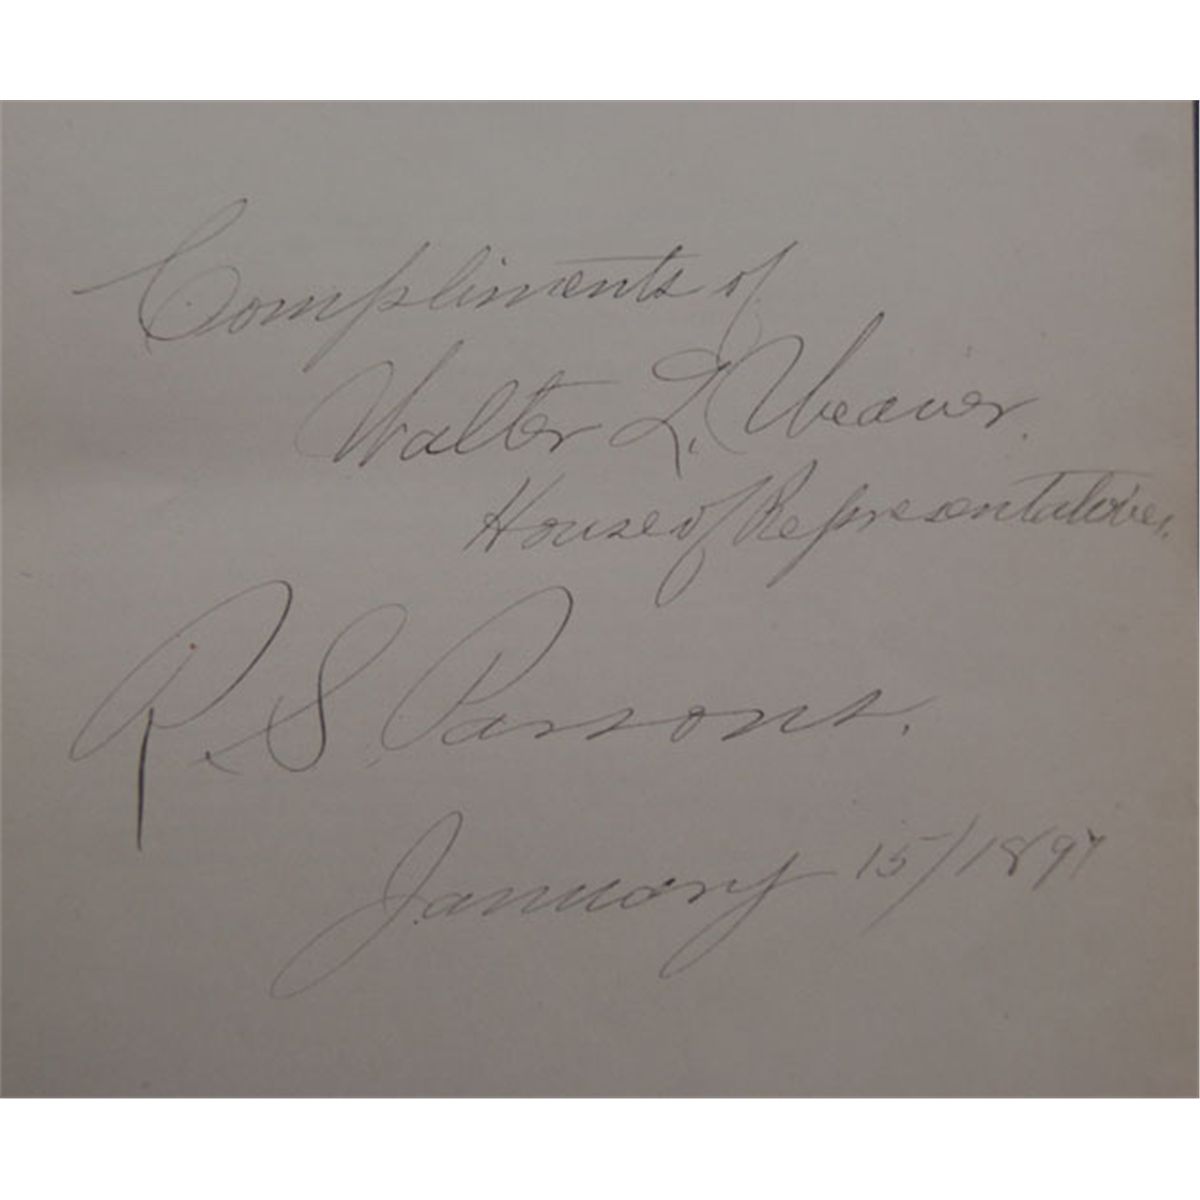 Compliments of
Walter L. Weaver.
House of Representatives.
R. S. Parsons.
January 15/1897